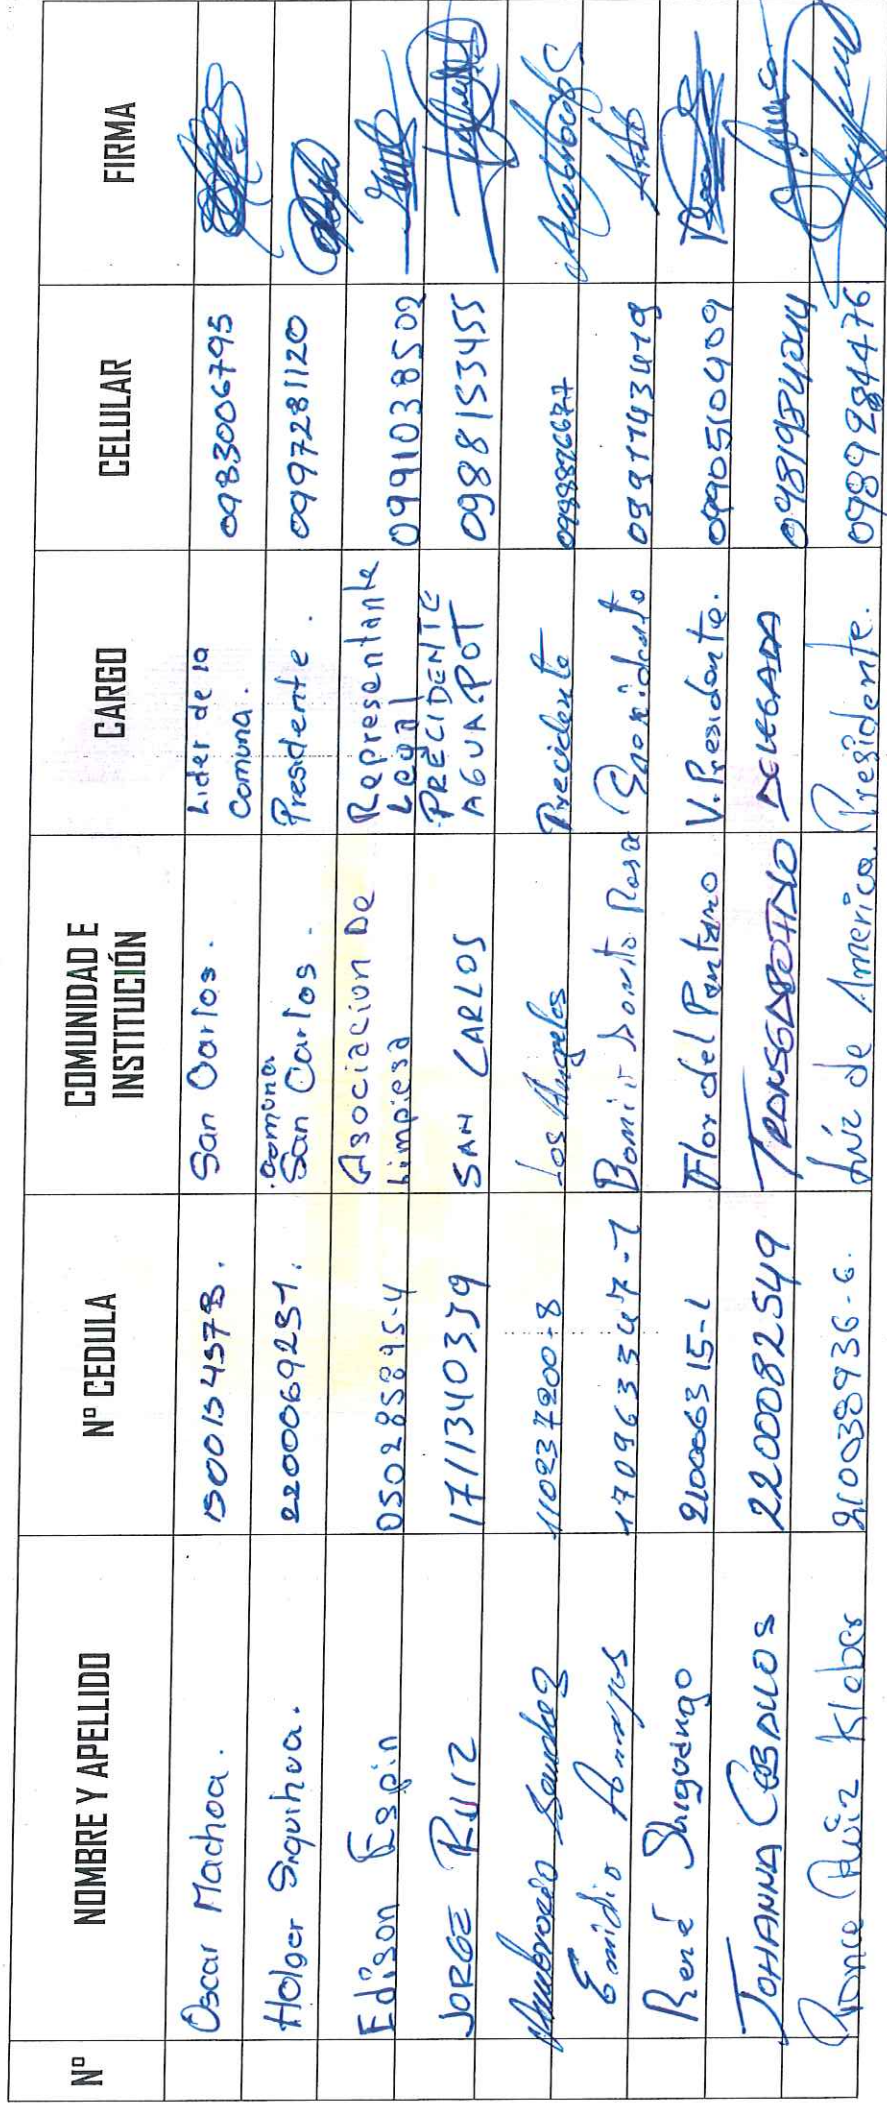 Nº NOMBRE Y APELLIDO Nº CEDULA COMUNIDAD E INSTITUCIÓN CARGO CELULAR FIRMA
Oscar Machoa. 150013457B. San Carlos. Lider de la Comuna. 0983006795
Holger Siquihua. 220006925-1. Comuna San Carlos. Presidente. 0997281120
Edison Espin 050285895-4 Asociacion De Limpiesa Representante Legal 0991038502
JORGE RUIZ 1711340339 SAN CARLOS PRECIDENTE AGUA.POT 0988153455
Ambrocio Sanchez 110237200-8 Los Angelos Precidente
Emidio 170963347-1 0997743419
René Shiguango 210006315-1 Flor del Pantano V. Presidente. 0990510409
JOHANNA 2200082549 DELEGADA 0981984044
Ponce Ruiz Kleber 210038936-6. Lúz de América. Presidente.